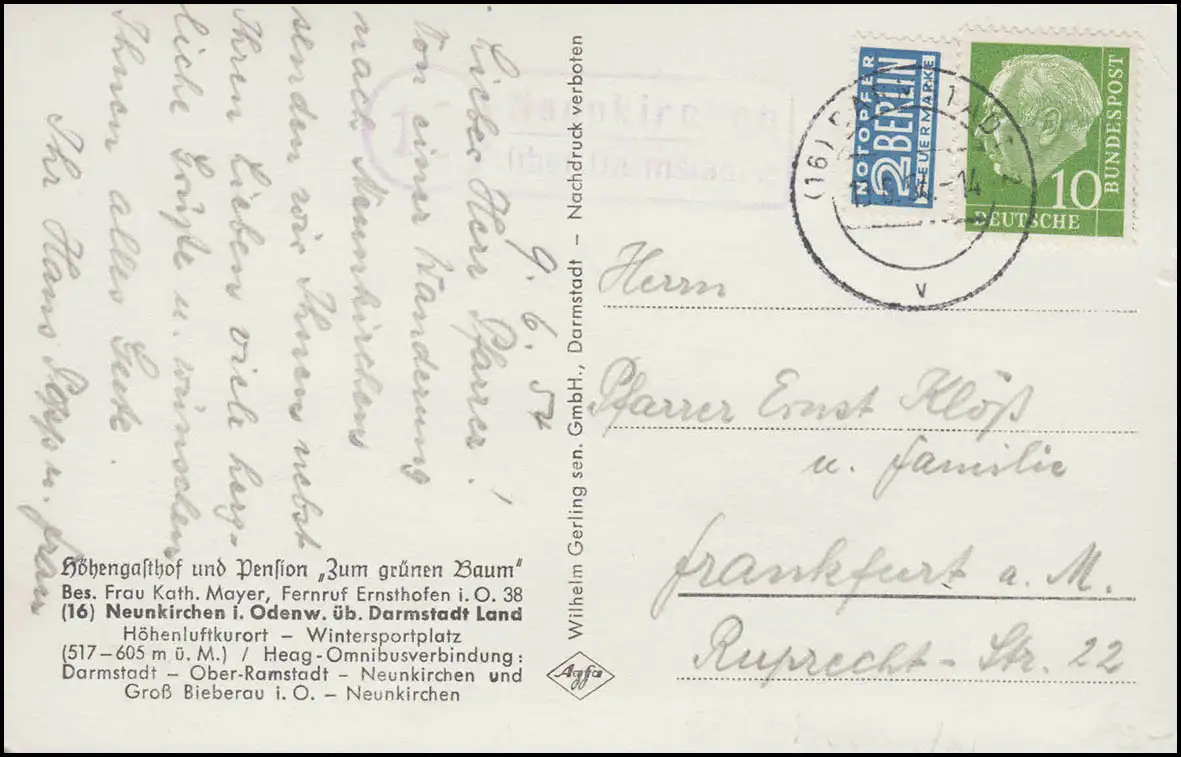 9. 6. 57
Lieber Herr Pfarrer!
Von einer Wanderung
nach Neunkirchen
senden wir Ihnen nebst
Ihren Lieben viele herz-
liche Grüße u. wünschen
Ihnen alles Gute.
Ihr Hans Popp u. Frau
Höhengasthof und Pension „Zum grünen Baum"
Bes. Frau Kath. Mayer, Fernruf Ernsthofen i. O. 38
(16) Neunkirchen i. Odenw. üb. Darmstadt Land
Höhenluftkurort – Wintersportplatz
(517–605 m ü. M.) / Heag-Omnibusverbindung:
Darmstadt – Ober-Ramstadt – Neunkirchen und
Groß Bieberau i. O. – Neunkirchen
Wilhelm Gerling sen. GmbH., Darmstadt – Nachdruck verboten
Agfa
16
Neunkirchen
über Darmstadt 2
NOTOPFER
2 BERLIN
STEUERMARKE
10
DEUTSCHE
BUNDESPOST
(16) DARMSTADT 2
-14
v
Herrn
Pfarrer Ernst Klöß
u. Familie
Frankfurt a. M.
Ruprecht-Str. 22